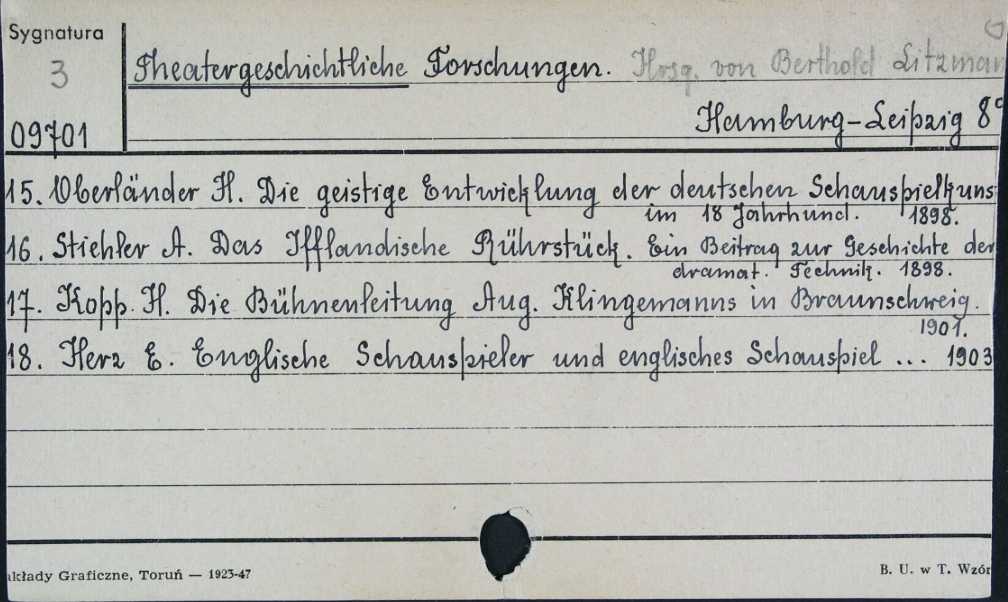 Sygnatura
3
09701
Theatergeschichtliche Forschungen. Hrsg. von Berthold Litzman
Hamburg-Leipzig 8°
15. Oberländer H. Die geistige Entwicklung der deutschen Schauspielkuns
im 18 Jahrhund. 1898.
16. Stiehler A. Das Ifflandische Rührstück. Ein Beitrag zur Geschichte der
dramat. Technik. 1898.
17. Kopp. H. Die Bühnenleitung Aug. Klingemanns in Braunschweig.
1901.
18. Herz E. Englische Schauspieler und englisches Schauspiel ... 1903
kłady Graficzne, Toruń — 1923-47
B. U. w T. Wzór